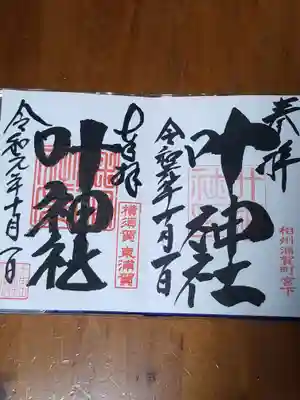 奉拝
叶神社
相州浦賀町宮下
令和元年十月一日
奉拝
叶神社
横須賀
東浦賀
令和元年十月一日